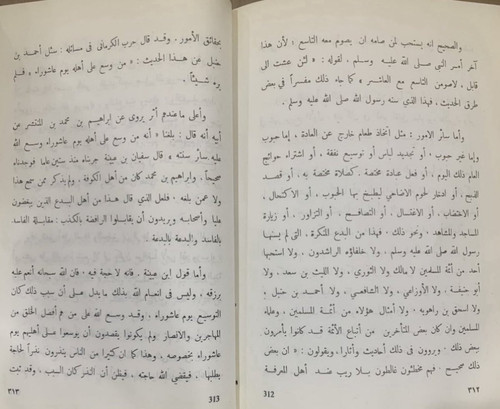 والصحيح انه يستحب لمن صامه ان يصوم معه التاسع ؛ لأن هذا
آخر أمر النبى صلى الله عليه وسلم ، لقوله : « لئن عشت الى
قابل ، لاصومن التاسع مع العاشر » كما جاء ذلك مفسراً في بعض
طرق الحديث ، فهذا الذي سنه رسول الله صلى الله عليه وسلم .
وأما سائر الامور : مثل اتخاذ طعام خارج عن العادة ، إما حبوب
وإما غير حبوب ، أو تجديد لباس أو توسيع نفقة ، أو اشتراء حوائج
العام ذلك اليوم ، أو فعل عبادة مختصة . كصلاة مختصة به ، أو قصد
الذبح ، أو ادخار لحوم الاضاحي ليطبخ بها الحبوب ، أو الاكتحال ،
أو الاختضاب ، أو الاغتسال ، أو التصافح ، أو التزاور ، أو زيارة
المساجد والمشاهد ، ونحو ذلك ، فهذا من البدع المنكرة ، التي لم يسنها
رسول الله صلى الله عليه وسلم ، ولا خلفاؤه الراشدون . ولا استحبها
أحد من أئمة المسلمين لا مالك ولا الثوري ، ولا الليث بن سعد ، ولا
أبو حنيفة ، ولا الأوزاعي ، ولا الشافعي ، ولا أحمد بن حنبل ،
ولا اسحق بن راهويه ، ولا أمثال هؤلاء من أئمة المسلمين ، وعلماء
المسلمين وان كان بعض المتأخرين من أتباع الأئمة قد كانوا يأمرون
ببعض ذلك ، ويروون في ذلك أحاديث وآثارا ، ويقولون : « ان بعض
ذلك صحيح . فهم مخطئون غالطون بلا ريب عند أهل المعرفة
312 ٣١٢
بحقائق الأمور . وقد قال حرب الكرماني في مسائله : سئل أحمد بن
حنبل عن هذا الحديث : « من وسع على أهله يوم عاشوراء » فلم
يره شيئاً .
وأعلى ما عندهم أثر يروى عن ابراهيم بن محمد بن المنتشر عن
أبيه أنه قال : بلغنا « أنه من وسع على أهله يوم عاشوراء وسع الله
عليه سائر سنته » قال سفيان بن عيينة جربناه منذ ستين عاما فوجدناه
صحيحاً . وابراهيم بن محمد كان من أهل الكوفة . ولم يذكر ممن سمع هذا
ولا عمن بلغه . فلعل الذي قال هذا من أهل البدع الذين يبغضون
علياً وأصحابه ويريدون أن يقابلوا الرافضة بالكذب . مقابلة الفاسد
بالفاسد والبدعة بالبدعة .
وأما قول ابن عيينة . فانه لا حجة فيه . فان الله سبحانه أنعم عليه
برزقه ، وليس في انعام الله بذلك ما يدل على أن سبب ذلك كان
التوسيع يوم عاشوراء . وقد وسع الله على من هم أفضل الخلق من
المهاجرين والانصار ولم يكونوا يقصدون أن يوسعوا على أهليهم يوم
عاشوراء بخصوصه . وهذا كما ان كثيرا من الناس ينذرون نذراً لحاجة
يطلبها . فيقضي الله حاجته . فيظن أن النذر كان السبب . وقد ثبت
٣١٣ 313